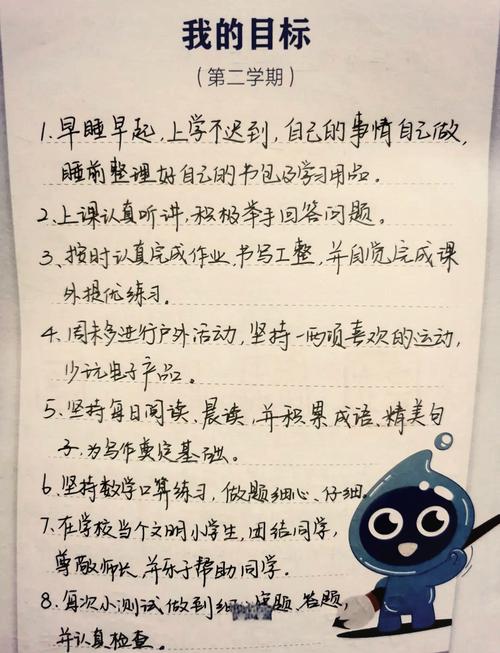 我的目标
（第二学期）
1.早睡早起，上学不迟到，自己的事情自己做，
睡前整理好自己的书包及学习用品。
2、上课认真听讲，积极举手回答问题。
3、按时认真完成作业、书写工整，并自觉完成课
外提优练习。
4、周末多进行户外活动，坚持一两项喜欢的运动，
少玩电子产品。
5、坚持每日阅读、晨读，并积累成语、精美句
子，为写作奠定基础。
6、坚持数学口算练习，做题细心、仔细。
7、在学校当个文明小学生，团结同学，
尊敬师长，并乐于帮助同学。
8、每次小测试做到细心 题、答题，
并认真检查。